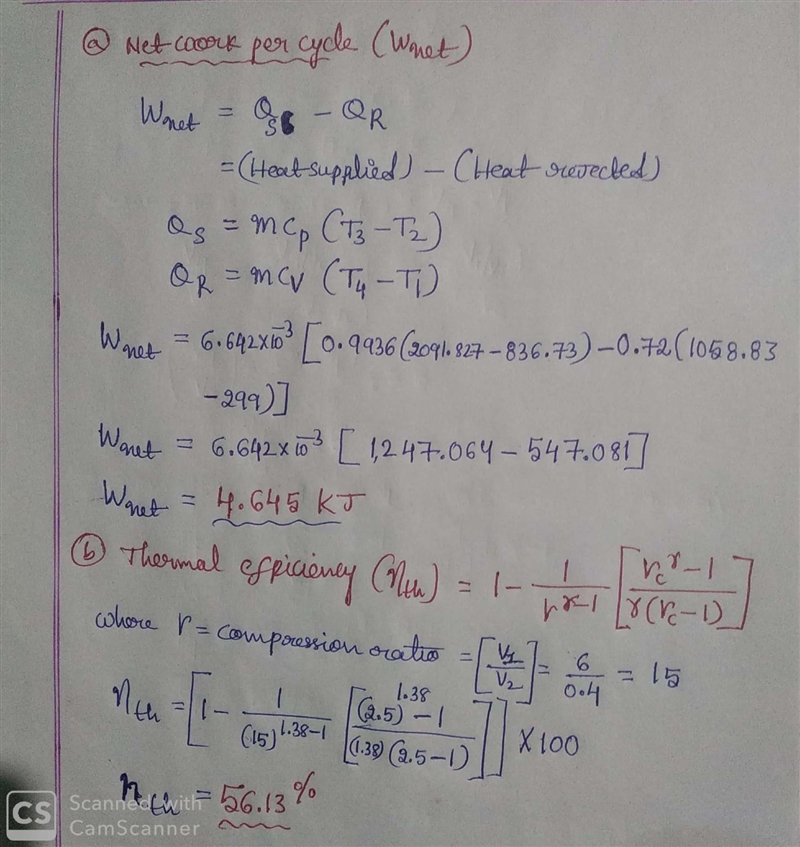 ⓐ Net work per cycle (Wnet)
Wnet = QS - QR
= (Heat supplied) - (Heat rejected)
QS = mCp (T3 - T2)
QR = mCV (T4 - T1)
Wnet = 6.642×10⁻³ [0.9936(2091.827 - 836.73) - 0.72(1058.83
- 299)]
Wnet = 6.642×10⁻³ [1,247.064 - 547.081]
Wnet = 4.645 KJ
ⓑ Thermal efficiency (ηth) = 1 - 1/r^(γ-1) [rc^γ - 1 / γ(rc - 1)]
where r = compression ratio = [V1/V2] = 6/0.4 = 15
ηth = [1 - 1/(15)^(1.38-1) [(2.5)^1.38 - 1 / (1.38)(2.5-1)]] × 100
ηth = 56.13%
CS Scanned with
CamScanner